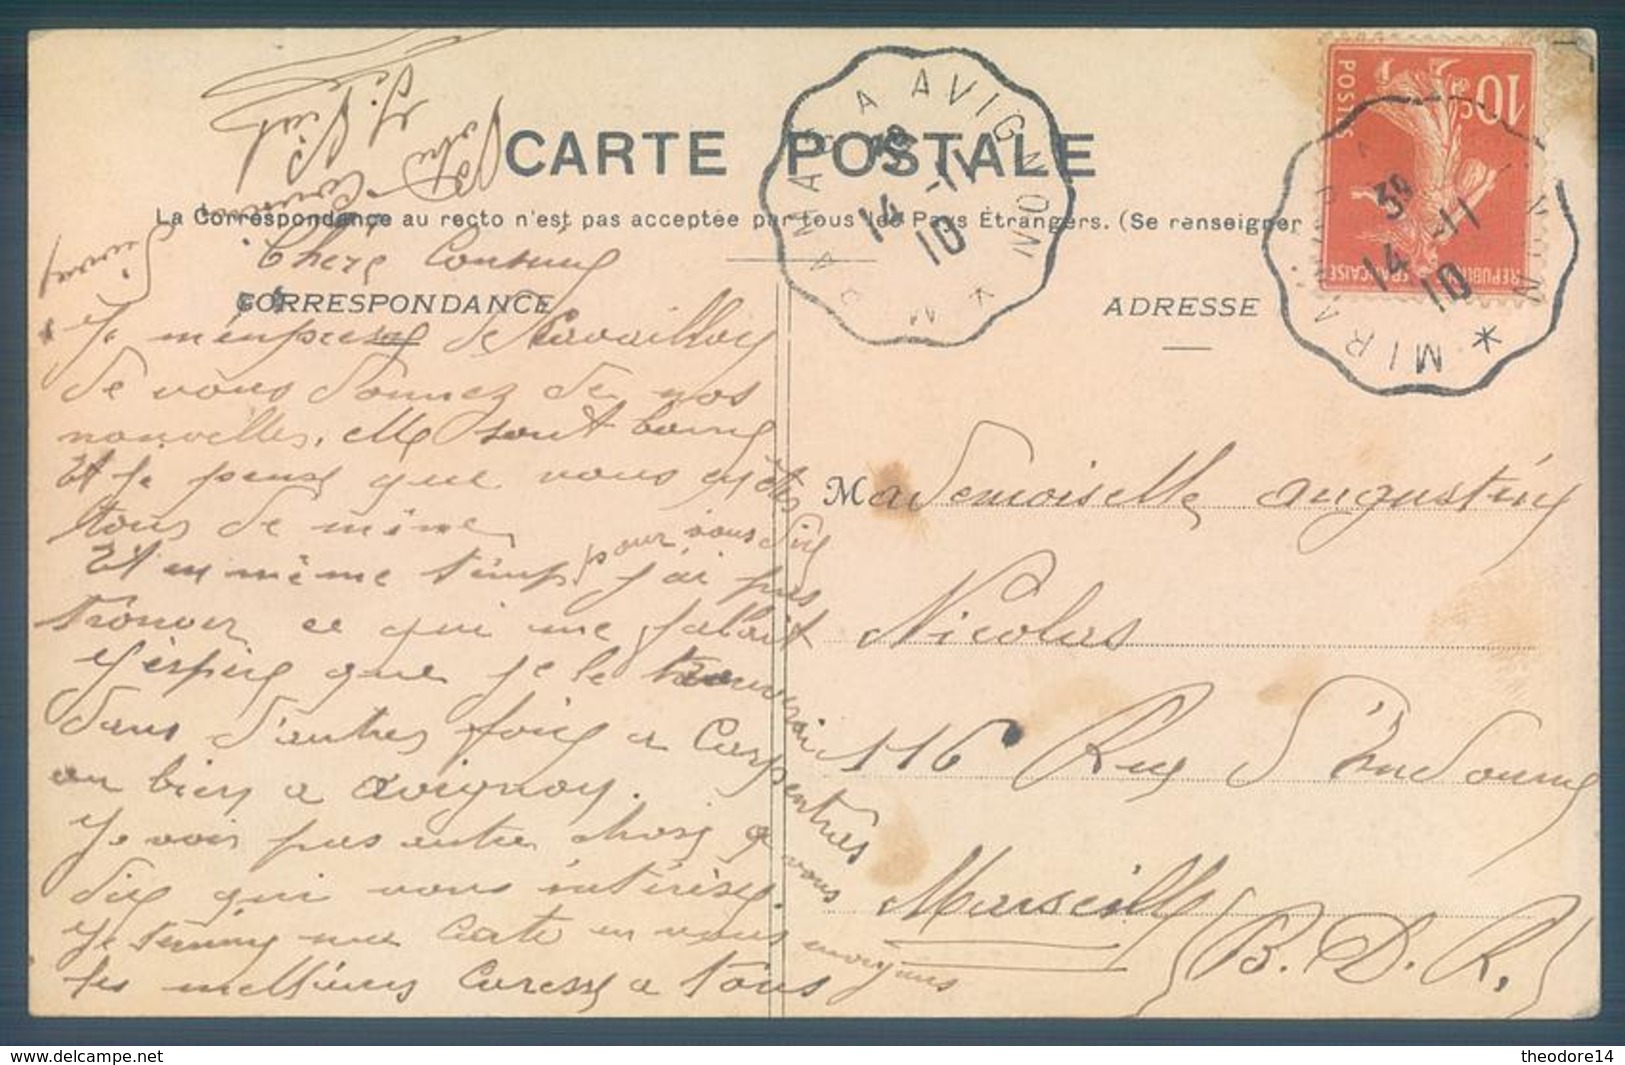 CARTE POSTALE
La Correspondance au recto n'est pas acceptée par tous les Pays Étrangers. (Se renseigner
CORRESPONDANCE
ADRESSE
Chere Cousine
Je m'enpresse de
de vous donnez de nos
nouvelles, elle sont bonne
Et je pense que vous ejtes
tous de même
Et en même temp pour vous dire j'ai pas
trouver ce qui me falait
j'espere que je le trouverai
dans d'autres fois a Carpentras
ou bien a avignon.
Je vois pas autre chose a vous
dire qui vous intérèse.
Je termine ma Carte en vous envoyant
les meillieures Caresse a tous
Votre Cousin
Mademoiselle augustine
Nicolas
116 Rue d'Endoume
Marseille (B. D. R.)
MIRAMAS A AVIGNON *
14 -11
10
MIRAMAS A AVIGNON *
14 -11
10
10c
POSTES
REPUBLIQUE FRANÇAISE
www.delcampe.net
theodore14